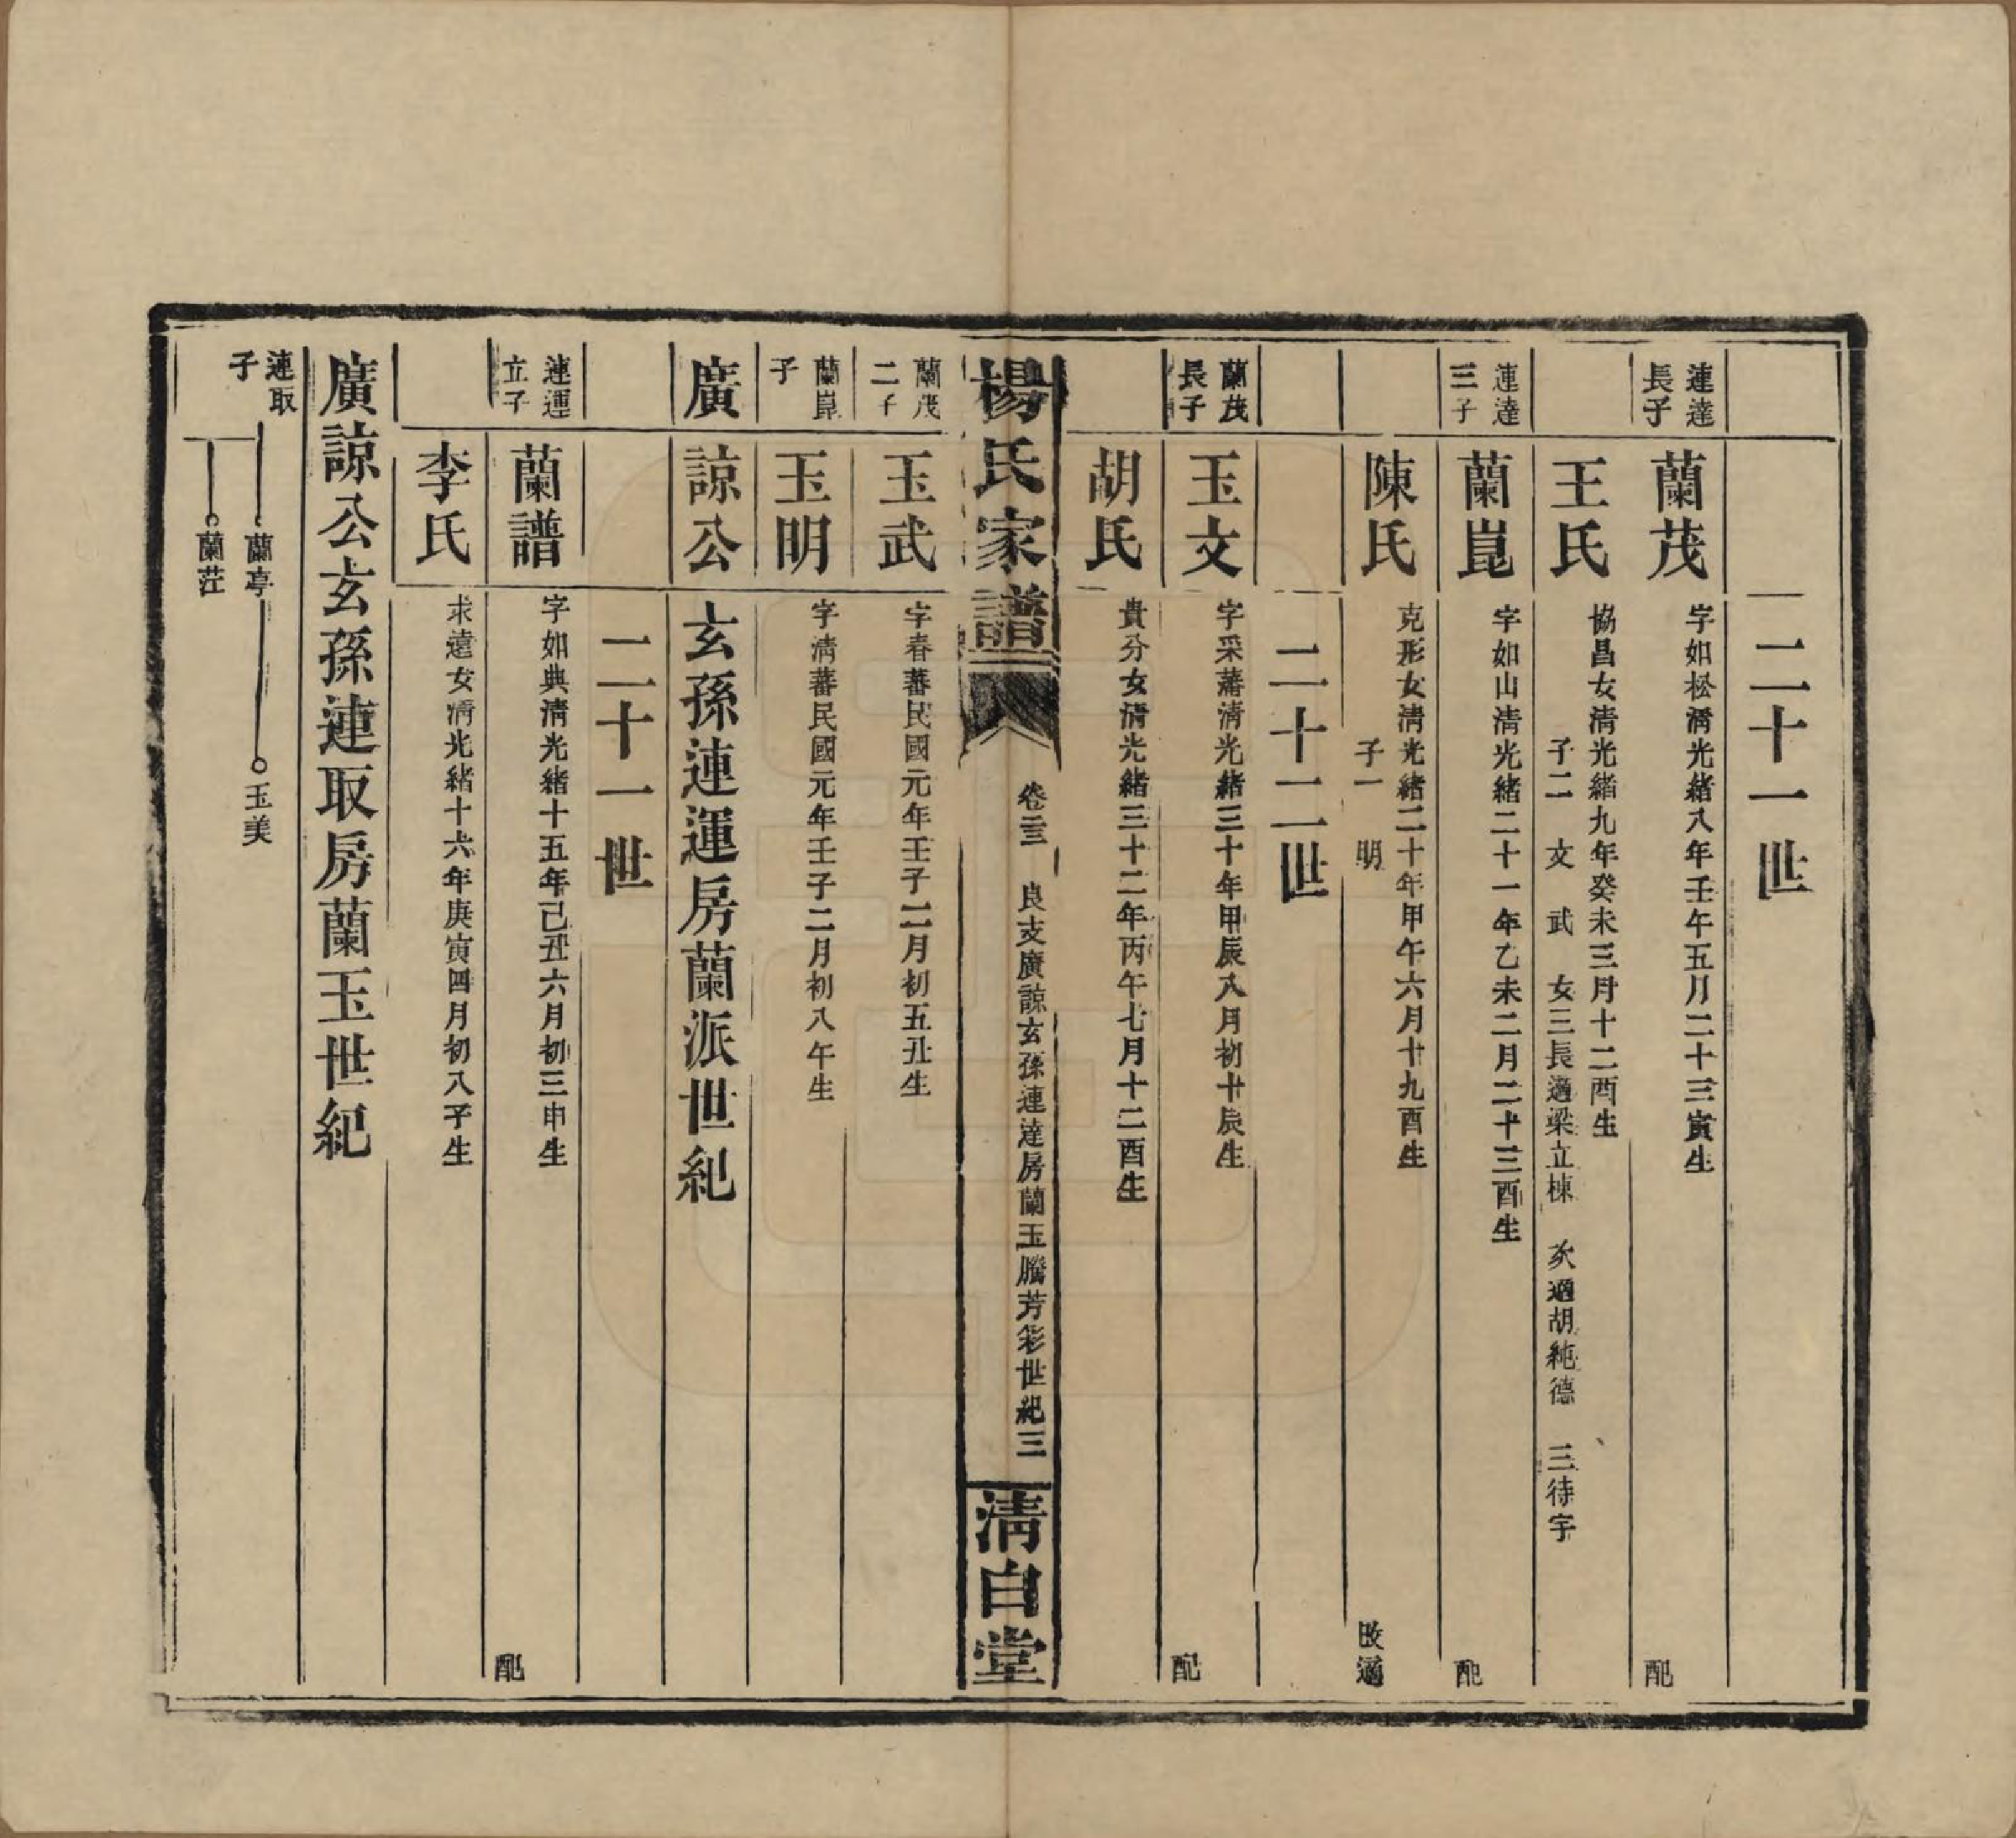 二十一世
連達長子
蘭茂
字如松清光緒八年壬午五月二十三寅生
配
王氏
協昌女清光緒九年癸未三月十二酉生
子二 文 武 女三長適梁立棟 次適胡純德 三待字
連達三子
蘭崑
字如山清光緒二十一年乙未二月二十三酉生
配
陳氏
克形女清光緒二十年甲午六月十九酉生
子一 明
改適
二十二世
蘭茂長子
玉文
字采蕃清光緒三十年甲辰八月初十辰生
配
胡氏
貴分女清光緒三十二年丙午七月十二酉生
楊氏家譜
卷二三 良支廣諒玄孫連達房蘭玉騰芳彩世紀三
清白堂
蘭茂二子
玉武
字春蕃民國元年壬子二月初五丑生
蘭崑子
玉明
字清蕃民國元年壬子二月初八午生
廣諒公玄孫連運房蘭派世紀
二十一世
連運立子
蘭譜
字如典清光緒十五年己丑六月初三申生
配
李氏
求遠女清光緒十六年庚寅四月初八子生
廣諒公玄孫連取房蘭玉世紀
連取子
蘭亭
玉美
蘭茳